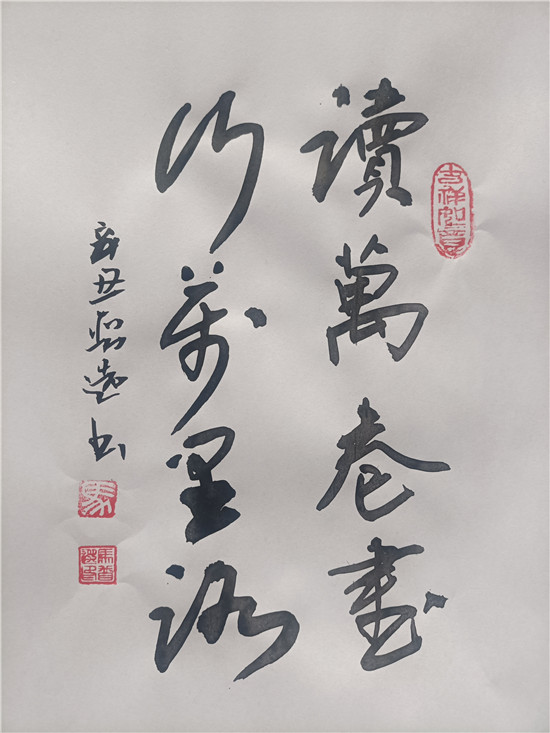 讀萬卷書
行萬里路
辛丑 書
吉祥如意
馬